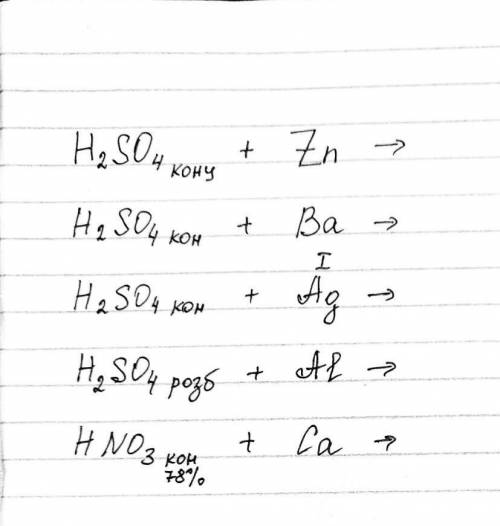 H₂SO₄ конц + Zn →
H₂SO₄ кон + Ba →
I
H₂SO₄ кон + Ag →
H₂SO₄ розб + Al →
HNO₃ кон + Ca →
78%